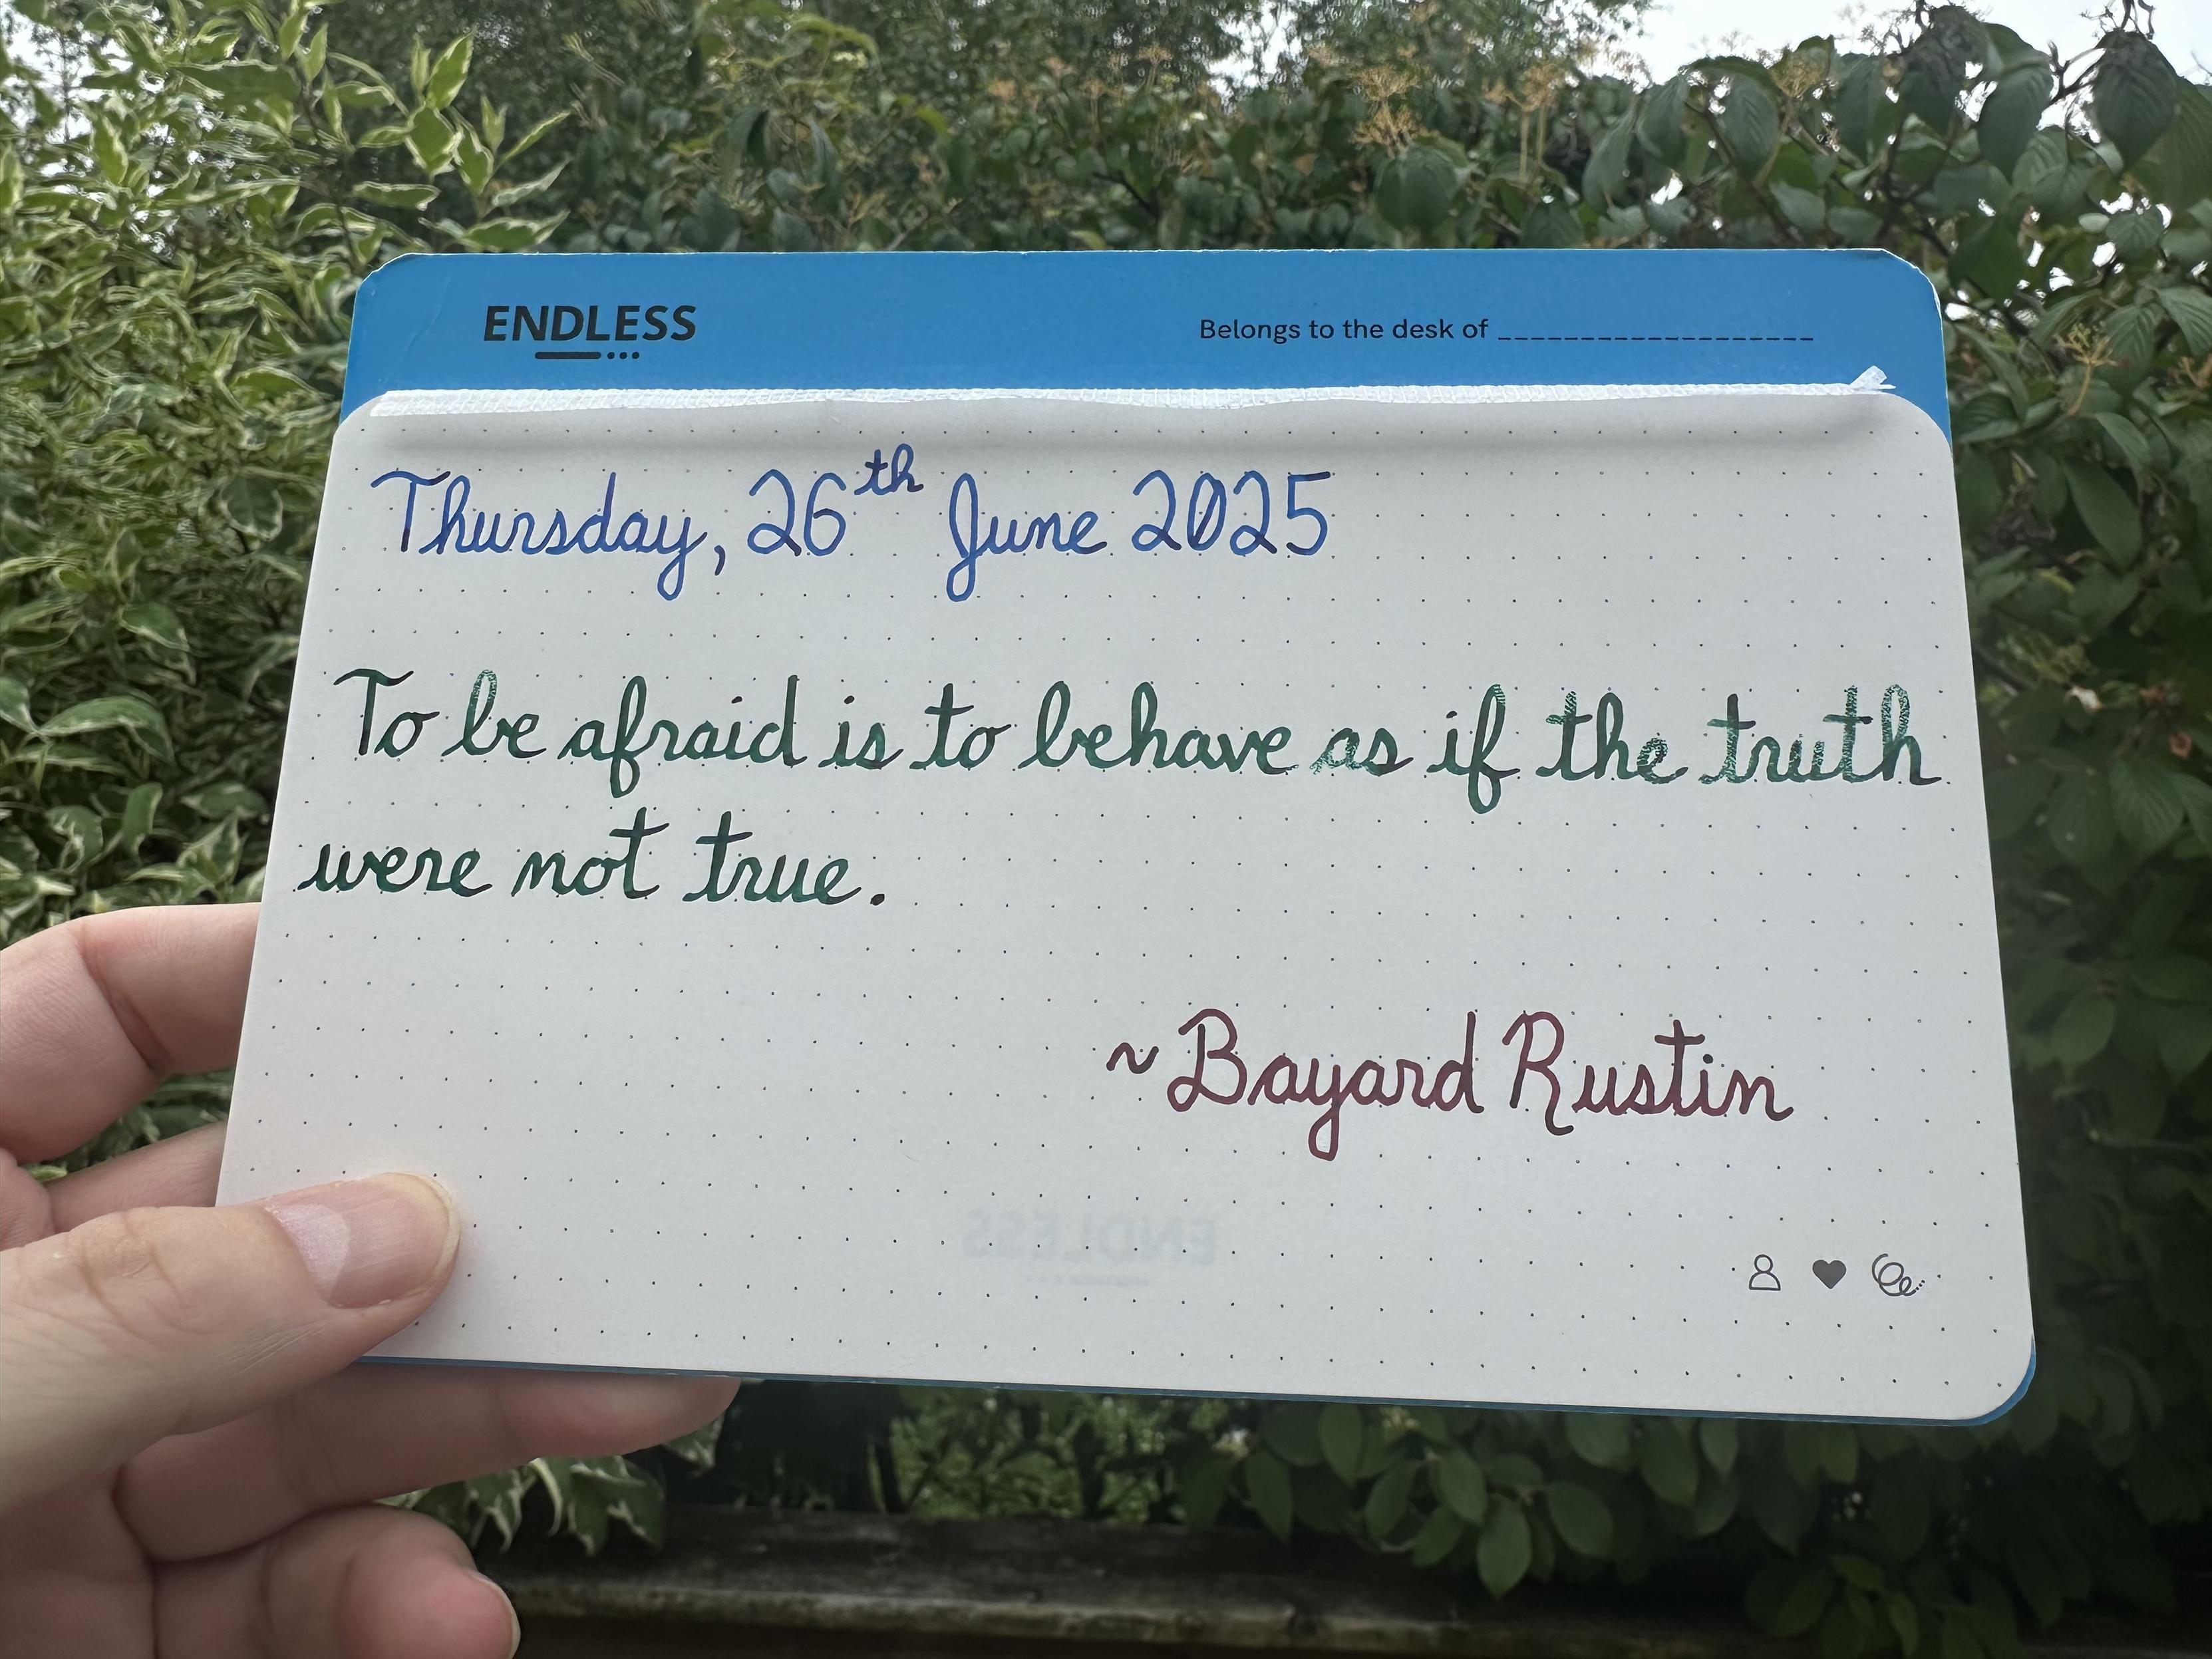 ENDLESS
Belongs to the desk of ___________________
Thursday, 26th June 2025
To be afraid is to behave as if the truth
were not true.
~Bayard Rustin
ENDLESS